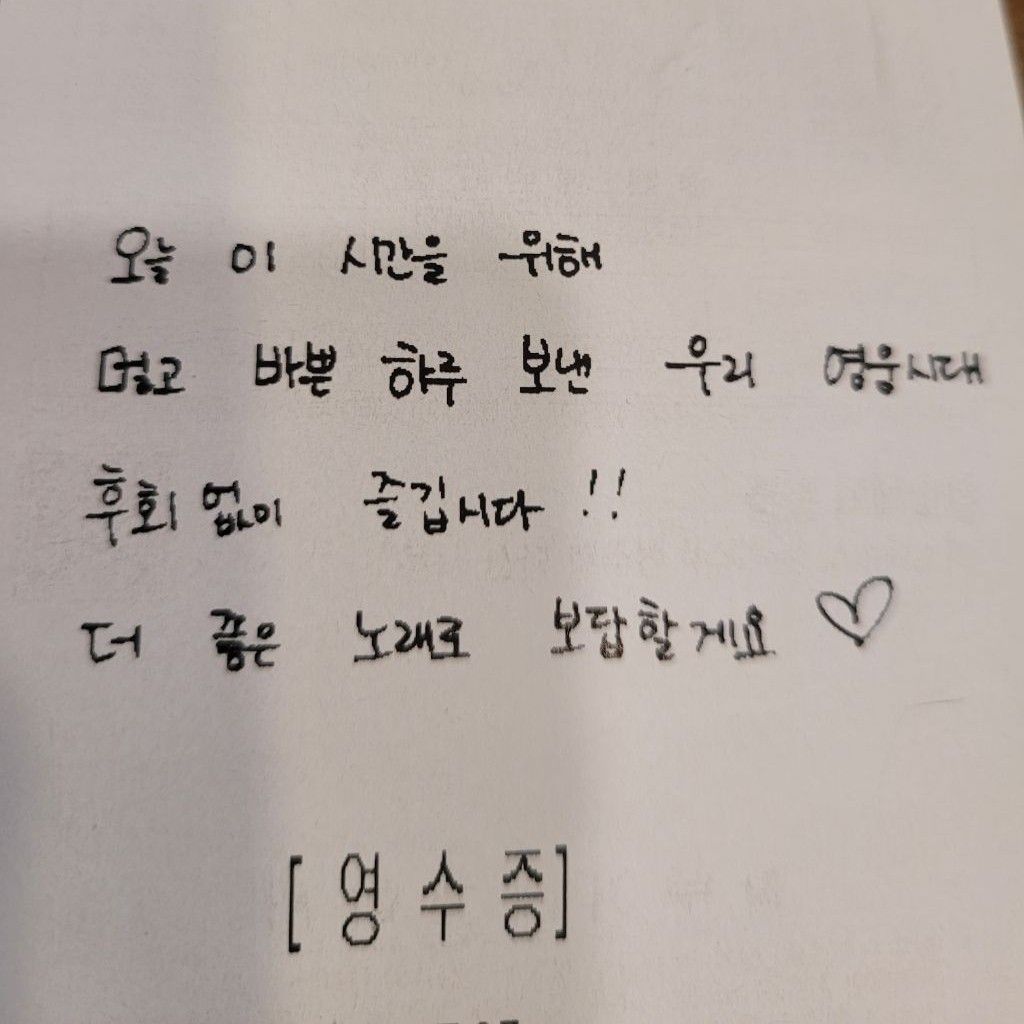 오늘 이 시간을 위해
멀고 바쁜 하루 보낸 우리 영웅시대
후회 없이 즐깁시다 !!
더 좋은 노래로 보답할게요 ♡
[ 영 수 증 ]